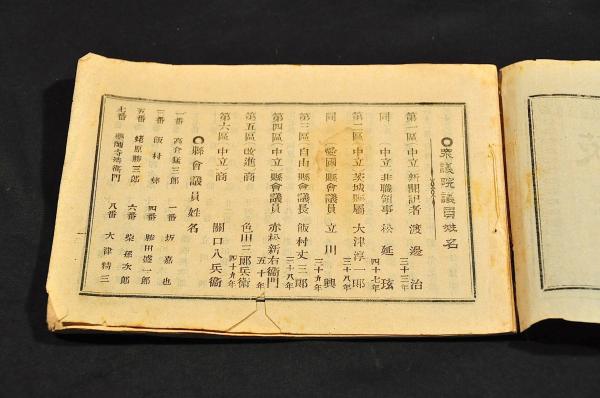 ◎衆議院議員姓名
第一區 中立 新聞記者 渡邊治 三十三年
同 中立 非職領事 松延玹 四十七年
第二區 中立 茨城縣屬 大津淳一郎 三十八年
同 愛國 縣會議員 立川興 三十九年
第三區 自由 縣會議長 飯村丈三郎 三十八年
第四區 中立 縣會議員 赤松新右衞門 五十年
第五區 改進 商 色川三郎兵衞
第六區 中立 商 關口八兵衞 四十九年
◎縣會議員姓名
一番 高倉猛三郎 二番 坂嘉也
三番 飯村 四番 勝田盛一郎
五番 蛯原勝三郎 六番 柴孫次郎
七番 八番 大津精三